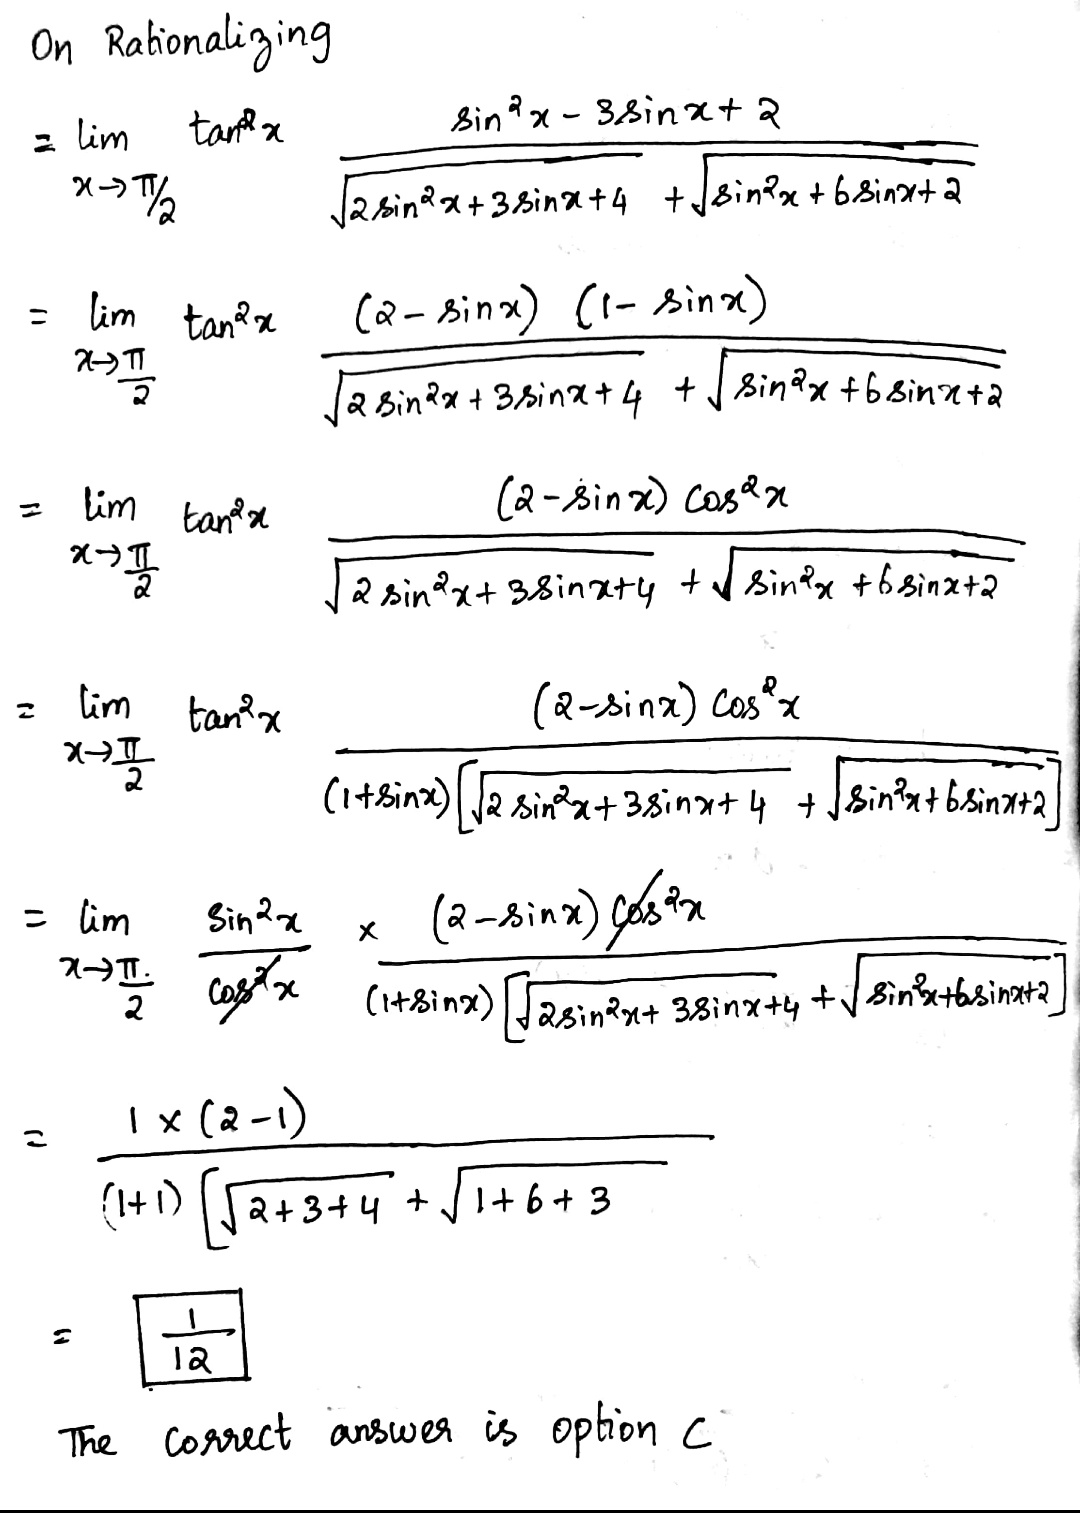 On Rationalizing
= lim x→π/2 tan²x (sin²x - 3sinx + 2) / (√(2sin²x + 3sinx + 4) + √(sin²x + 6sinx + 2))
= lim x→π/2 tan²x (2 - sinx) (1 - sinx) / (√(2sin²x + 3sinx + 4) + √(sin²x + 6sinx + 2))
= lim x→π/2 tan²x (2 - sinx) cos²x / (√(2sin²x + 3sinx + 4) + √(sin²x + 6sinx + 2))
= lim x→π/2 tan²x (2 - sinx) cos²x / ((1 + sinx) [√(2sin²x + 3sinx + 4) + √(sin²x + 6sinx + 2)])
= lim x→π/2 sin²x / cos²x × (2 - sinx) cos²x / ((1 + sinx) [√(2sin²x + 3sinx + 4) + √(sin²x + 6sinx + 2)])
= 1 × (2 - 1) / ((1 + 1) [√(2 + 3 + 4) + √(1 + 6 + 3)
= 1/12
The correct answer is option C